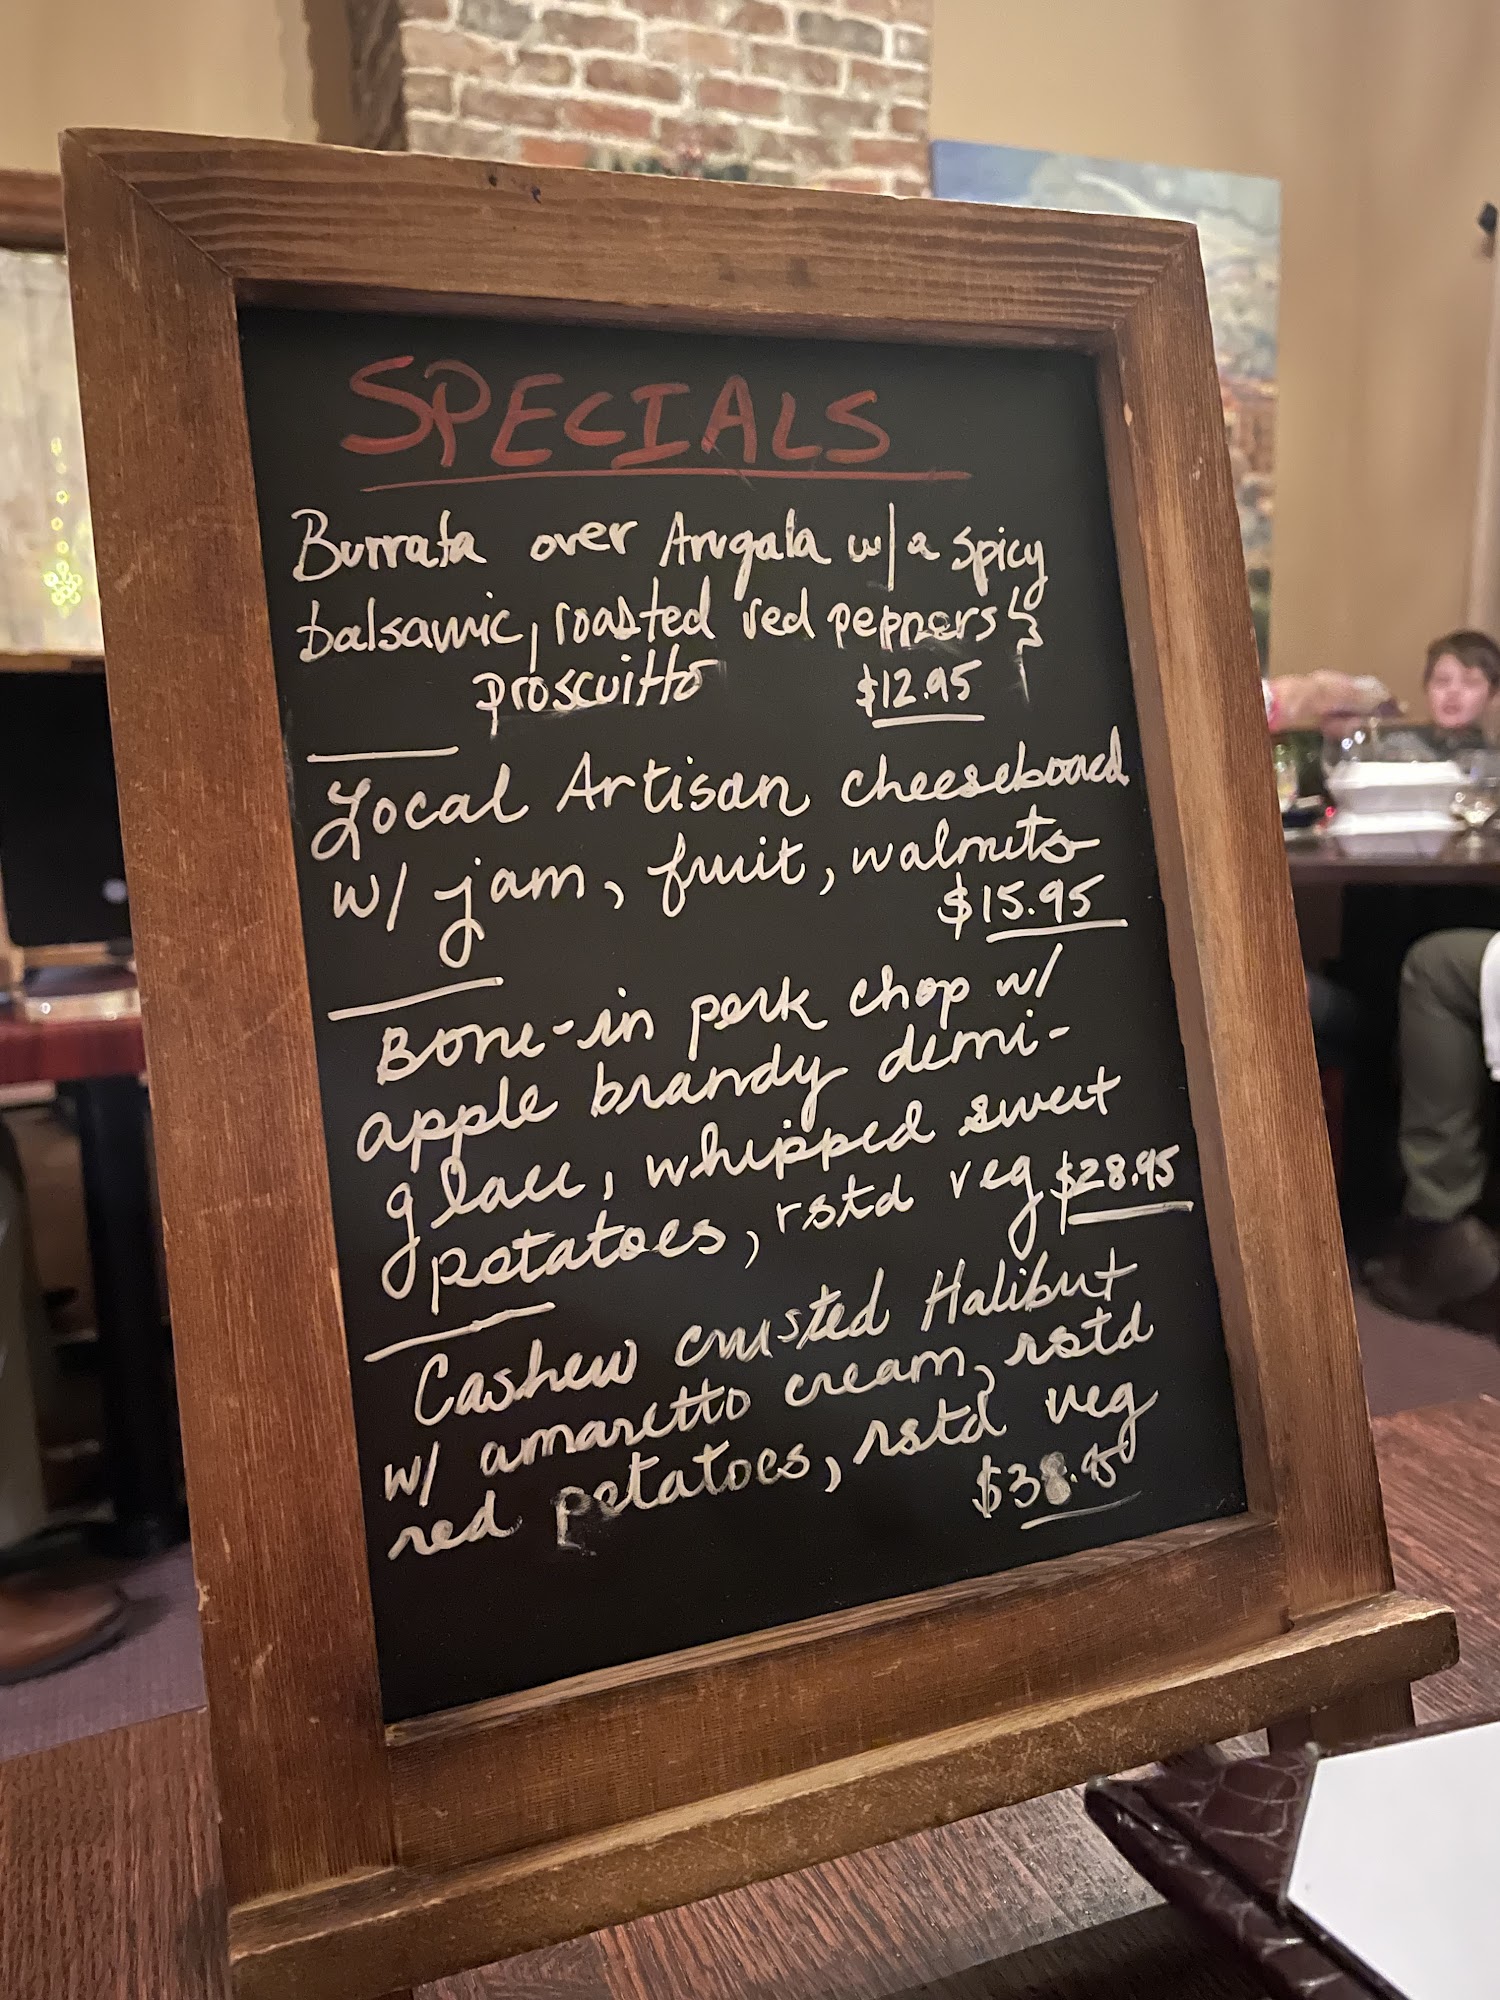 SPECIALS
Burrata over Arugala w/ a spicy
balsamic, roasted red peppers &
proscuitto $12.95
Local Artisan cheeseboard
w/ jam, fruit, walnuts
$15.95
Bone-in pork chop w/
apple brandy demi-
glace, whipped sweet
potatoes, rstd veg $28.95
Cashew crusted Halibut
w/ amaretto cream, rstd
red potatoes, rstd veg
$38.95